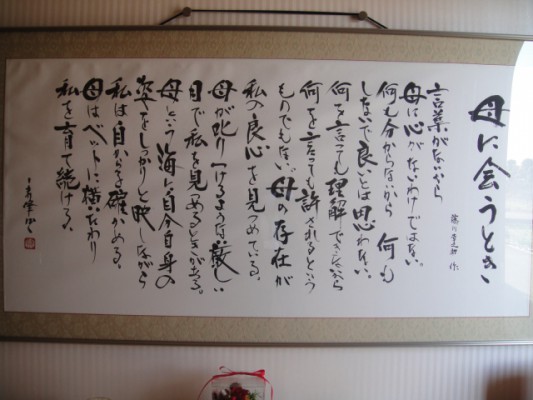 母に会うとき
藤川幸之助 作
言葉がないから
母に心がないわけではない。
何も分からないから 何も
しないで良いとは思わない。
何を言っても理解できないから
何を言っても許されるという
ものでもない。母の存在が
私の良心を見つめている。
母が叱りつけるような厳しい
目で私を見つめるときがある。
母という海に自分自身の
姿をしっかりと映しながら
私は自分を確かめる。
母はベットに横たわり
私を育て続ける。